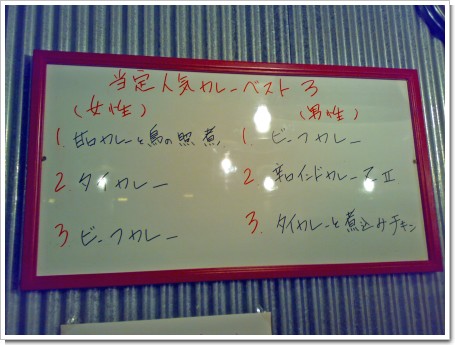 当定人気カレーベスト3
(女性)
1. 甘口カレーと鳥の照煮
2. タイカレー
3 ビーフカレー
(男性)
1. ビーフカレー
2. 辛口インドカレー
3. タイカレーと煮込みチキン